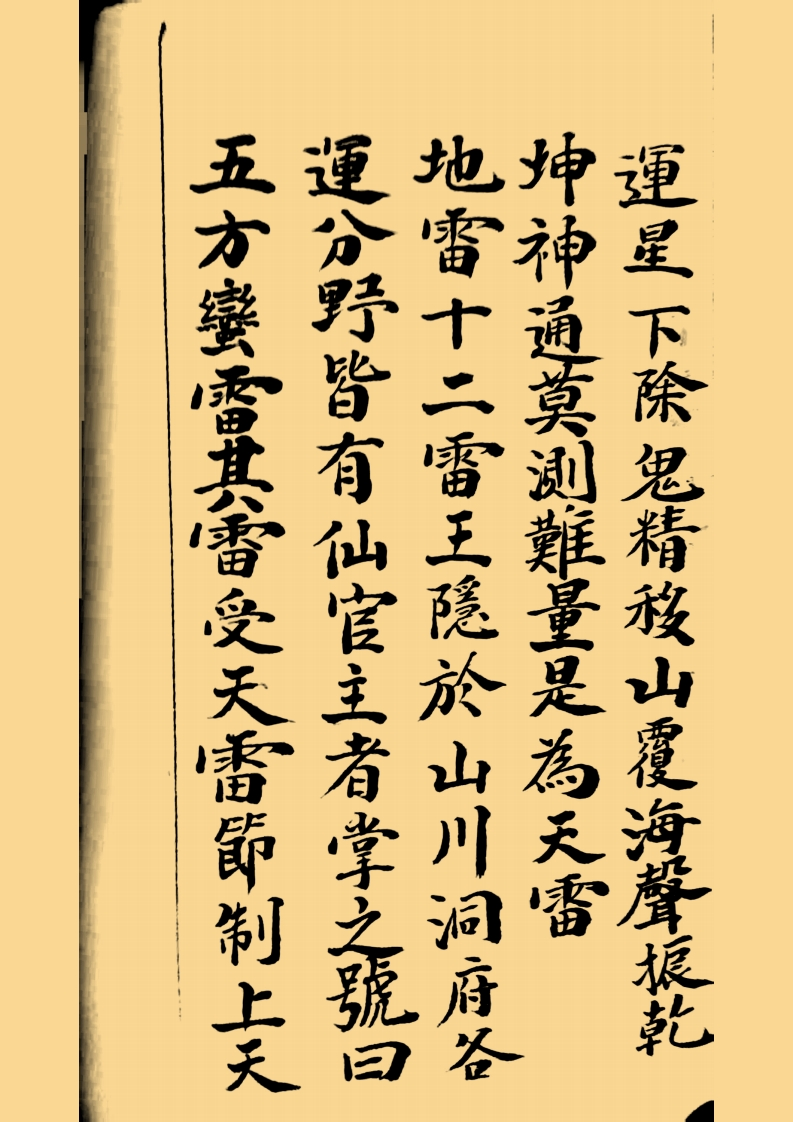 運星下除鬼精移山覆海聲振乾
坤神通莫測難量是為天雷
地雷十二雷王隱於山川洞府各
運分野皆有仙官主者掌之號曰
五方蠻雷其雷受天雷節制上天